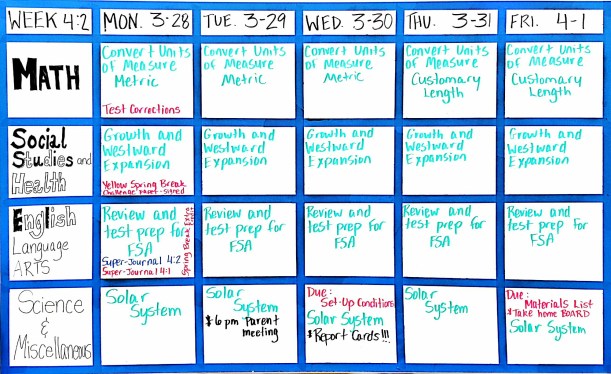 WEEK 4:2
MON. 3-28
TUE. 3-29
WED. 3-30
THU. 3-31
FRI. 4-1
MATH
Convert Units
of Measure
Metric
Test Corrections
Convert Units
of Measure
Metric
Convert Units
of Measure
Metric
Convert Units
of Measure
Customary
Length
Convert Units
of Measure
Customary
Length
Social
Studies and
Health
Growth and
Westward
Expansion
Yellow Spring Break
Challenge Page-signed
Growth and
Westward
Expansion
Growth and
Westward
Expansion
Growth and
Westward
Expansion
Growth and
Westward
Expansion
English
Language
ARTS
Review and
test prep for
FSA
Super-Journal 4:2
Super-Journal 4:1
Spring Break Extra
Credit
Review and
test prep for
FSA
Review and
test prep for
FSA
Review and
test prep for
FSA
Review and
test prep for
FSA
Science
&
Miscellaneous
Solar
System
Solar
System
6pm Parent
meeting
Due:
Set-Up Conditions
Solar System
Report Cards!!!
Solar
System
Due:
Materials List
Take home BOARD
Solar System